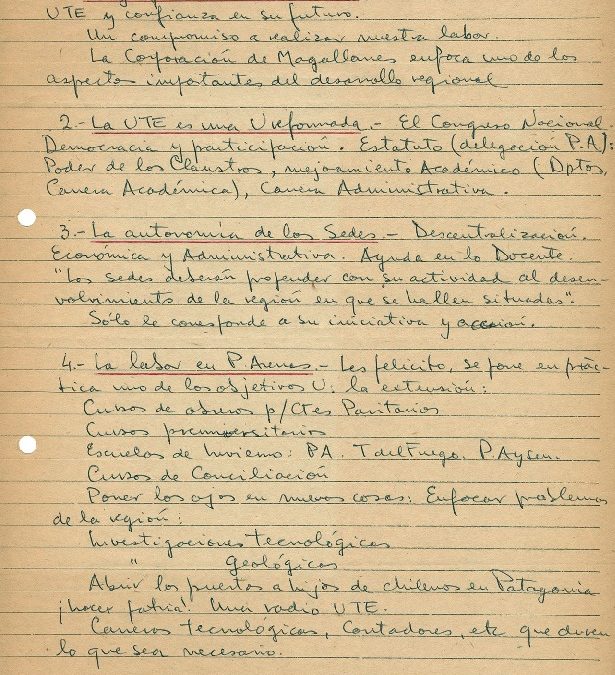 UTE y confianza en su futuro.
Un compromiso a realizar nuestra labor.
La Corporación de Magallanes enfoca uno de los
aspectos importantes del desarrollo regional
2.- La UTE es una U reformada.- El Congreso Nacional.
Democracia y participación. Estatuto (delegación P.A):
Poder de los Claustros, mejoramiento Académico (Dptos,
Carrera Académica), Carrera Administrativa.
3.- La autonomía de las Sedes.- Descentralización.
Económica y Administrativa. Ayuda en lo Docente.
"Las sedes deberán propender con su actividad al desen-
volvimiento de la región en que se hallen situadas".
Sólo le corresponde a su iniciativa y acción.
4.- La labor en P Arenas.- Les felicito, se pone en prác-
tica uno de los objetivos U: la extensión:
Cursos de obreros p/Ctes Paritarios
Cursos preuniversitarios
Escuelas de Invierno: PA. T del Fuego. P Aysen.
Cursos de Conciliación
Poner los ojos en nuevas cosas: Enfocar problemas
de la región:
Investigaciones tecnológicas
" Geológicas
Abrir las puertas a hijos de chilenos en Patagonia
¡hacer patria! Una radio UTE.
Carreras Tecnológicas, Contadores, etc que duren
lo que sea necesario.